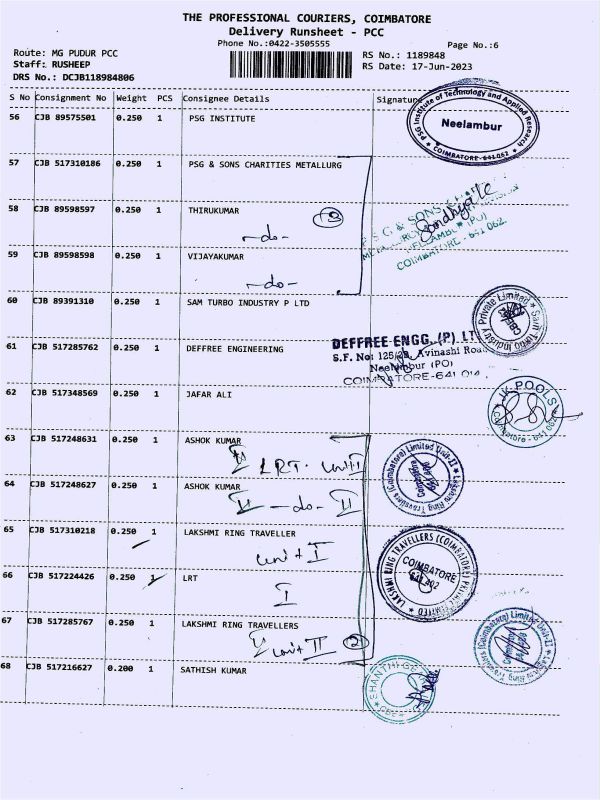 THE PROFESSIONAL COURIERS, COIMBATORE
Delivery Runsheet - PCC
Phone No.:0422-3505555
Page No.:6
Route: MG PUDUR PCC
RS No.: 1189848
Staff: RUSHEEP
RS Date: 17-Jun-2023
DRS No.: DCJB118984806
S No Consignment No Weight PCS Consignee Details Signature
56 CJB 89575501 0.250 1 PSG INSTITUTE
PSG Institute of Technology and Applied Research
Neelambur
COIMBATORE - 641 062
57 CJB 517310186 0.250 1 PSG & SONS CHARITIES METALLURG
58 CJB 89598597 0.250 1 THIRUKUMAR
3
-do-
PSG & SONS
COIMBATORE - 641 062
59 CJB 89598598 0.250 1 VIJAYAKUMAR
-do-
60 CJB 89391310 0.250 1 SAM TURBO INDUSTRY P LTD
Sam Turbo Industry Private Limited
CBE
61 CJB 517285762 0.250 1 DEFFREE ENGINEERING
DEFFREE ENGG. (P) LT
S.F. No: 125/2B, Avinashi Road
Neelambur (PO)
COIMBATORE-641 014
62 CJB 517348569 0.250 1 JAFAR ALI
POOLS
Coimbatore - 641 062
63 CJB 517248631 0.250 1 ASHOK KUMAR
II LRT. unit I
Lakshmi Ring Travellers (Coimbatore) Limited Unit-II
64 CJB 517248627 0.250 1 ASHOK KUMAR
II -do- II
65 CJB 517310218 0.250 1 LAKSHMI RING TRAVELLER
unit I
LAKSHMI RING TRAVELLERS (COIMBATORE) PRIVATE LIMITED
COIMBATORE
641 402
66 CJB 517224426 0.250 1 LRT
I
67 CJB 517285767 0.250 1 LAKSHMI RING TRAVELLERS
II unit II 2
Lakshmi Ring Travellers (Coimbatore) Limited Unit-II
68 CJB 517216627 0.200 1 SATHISH KUMAR
SHANTHI GE
CBE